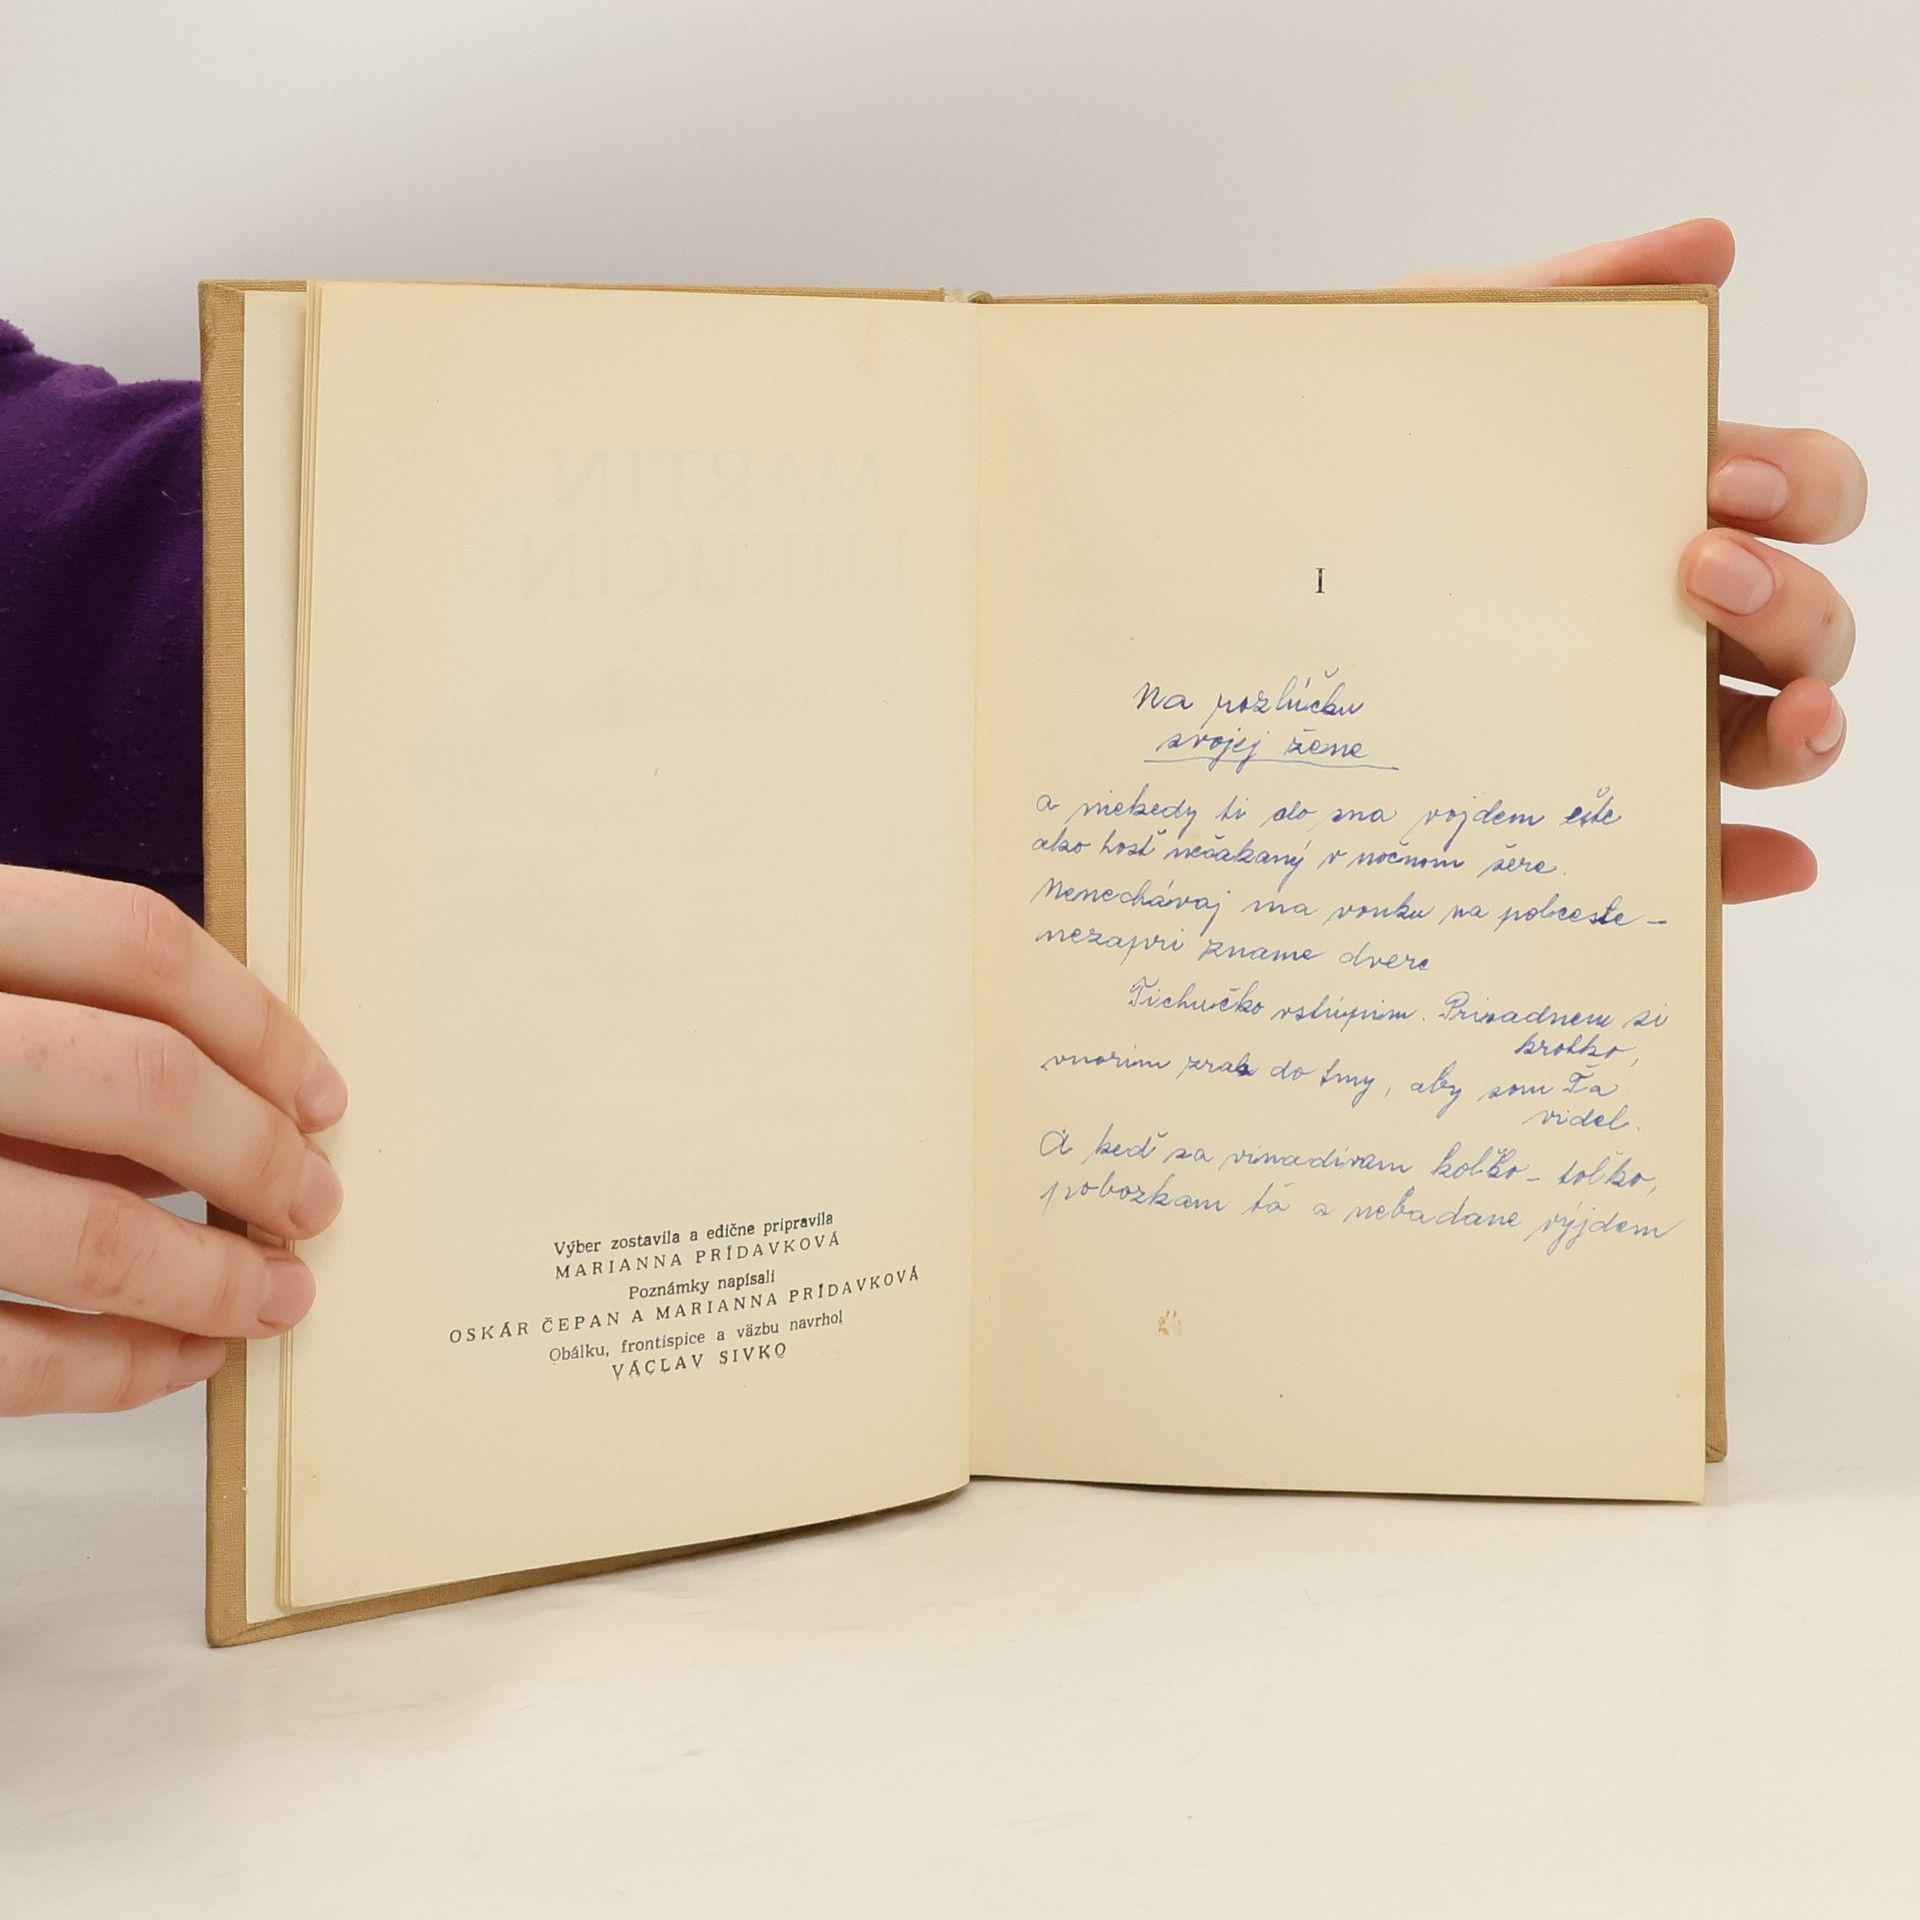 MARTIN
KUKUČÍN
Výber zostavila a edične pripravila
MARIANNA PRÍDAVKOVÁ
Poznámky napísali
OSKÁR ČEPAN A MARIANNA PRÍDAVKOVÁ
Obálku, frontispice a väzbu navrhol
VÁCLAV SIVKO
I
Na rozlúčku
svojej žene
a niekedy ti do sna vojdem ešte
ako hosť nečakaný v nočnom šere.
Nenechávaj ma vonku na polceste –
nezapri zname dvere
Tichučko vstúpim. Prisadnem si
krotko,
vnorim zrak do tmy, aby som Ťa
videl.
A keď sa vinadivam koľko – toľko,
pobozkam ťa a nebadane výjdem